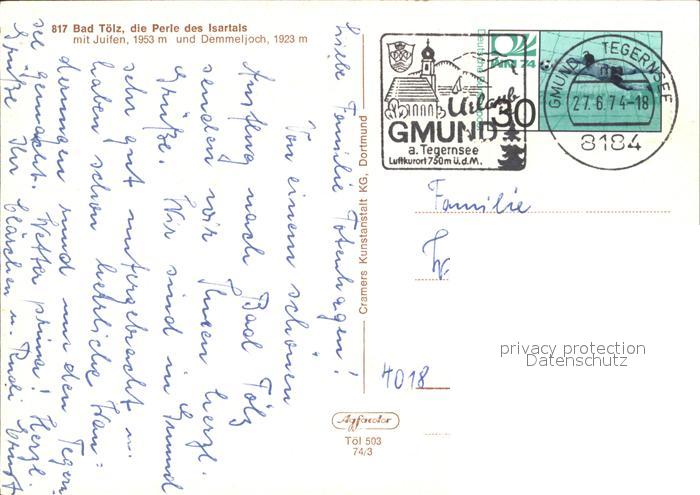 817 Bad Tölz, die Perle des Isartals
mit Juifen, 1953 m und Demmeljoch, 1923 m
Liebe Familie Totenhagen!
Von einem schönen
Ausflug nach Bad Tölz
senden wir Ihnen herzl.
Grüße. Wir sind in Gmund
sehr gut untergebracht u.
haben schon herrliche Wan=
derungen rund um den Tegern=
see gemacht. Wetter prima! Herzl.
Grüße Ihr Clärchen u. Rudi
Cramers Kunstanstalt KG, Dortmund
Deutsche
WM 74
30
Urlaub
GMUND
a. Tegernsee
Luftkurort 750m ü.d.M.
GMUND a. TEGERNSEE
27.6.74-18
8184
Familie
4018
privacy protection
Datenschutz
Agfacolor
Töl 503
74/3